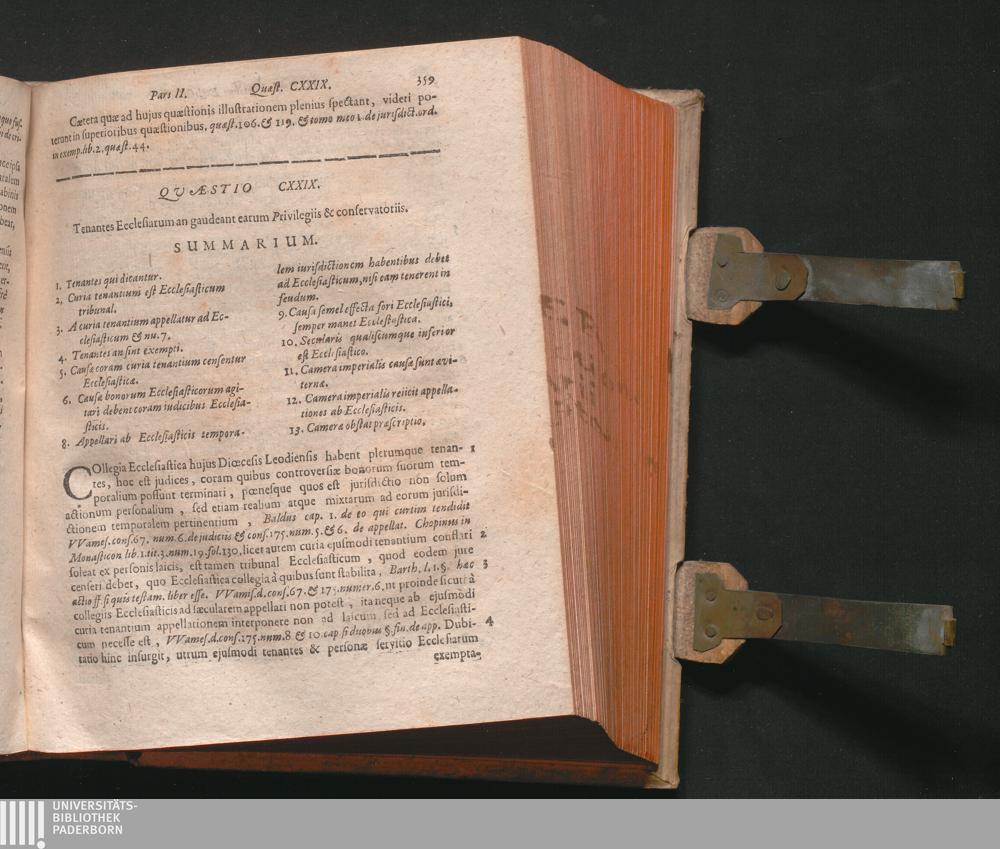 Pars II. Quæst. CXXIX. 359
Cætera quæ ad hujus quæstionis illustrationem plenius spectant, videri po-
terunt in superioribus quæstionibus, quæst.106.& 119. & tomo meo 1. de jurisdict.ord.
in exemp.lib.2.quæst.44.
QVÆSTIO CXXIX.
Tenantes Ecclesiarum an gaudeant earum Privilegiis & conservatoriis.
SUMMARIUM.
1. Tenantes qui dicantur.
2. Curia tenantium est Ecclesiasticum
tribunal.
3. A curia tenantium appellatur ad Ec-
clesiasticum & nu.7.
4. Tenantes an sint exempti.
5. Causæ coram curia tenantium censentur
Ecclesiasticæ.
6. Causæ bonorum Ecclesiasticorum agi-
tari debent coram iudicibus Ecclesia-
sticis.
8. Appellari ab Ecclesiasticis tempora-
lem iurisdictionem habentibus debet
ad Ecclesiasticum, nisi eam tenerent in
feudum.
9. Causa semel effecta fori Ecclesiastici,
semper manet Ecclesiastica.
10. Secularis qualiscumque inferior
est Ecclesiastico.
11. Camera imperialis causæ sunt ævi-
ternæ.
12. Camera imperialis reiicit appella-
tiones ab Ecclesiasticis.
13. Cameræ obstat præscriptio.
COllegia Ecclesiastica hujus Diœcesis Leodiensis habent plerumque tenan- 1
tes, hoc est judices, coram quibus controversiæ bonorum suorum tem-
poralium possunt terminari, pœnesque quos est jurisdictio non solum
actionum personalium, sed etiam realium atque mixtarum ad eorum jurisdi-
ctionem temporalem pertinentium, Baldus cap. 1. de eo qui curtim tendidit
VVames.cons.67. num.6.de judiciis & cons.175.num.5.& 6. de appellat. Chopinus in
Monasticon lib.1.tit.3.num.19.fol.130. licet autem curia ejusmodi tenantium constari 2
soleat ex personis laicis, est tamen tribunal Ecclesiasticum, quod eodem jure
censeri debet, quo Ecclesiastica collegia à quibus sunt stabilita, Barth. l.1.§. hæc 3
actio ff. si quis testam. liber esse. VVames.d.cons.67.& 175.numer.6. ut proinde sicuti à
collegiis Ecclesiasticis ad sæcularem appellari non potest, ita neque ab ejusmodi
curia tenantium appellationem interponere non ad laicum sed ad Ecclesiasti-
cum necesse est, VVames.d.cons.175.num.8.& 10.cap.si duobus §.fin.de app. Dubi- 4
tatio hinc insurgit, utrum ejusmodi tenantes & personæ servitio Ecclesiarum
exempta-
UNIVERSITÄTS-
BIBLIOTHEK
PADERBORN